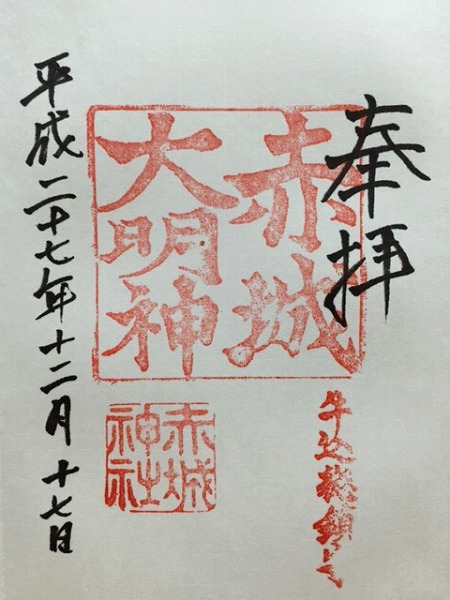 奉拝
赤城
大明神
牛込総鎮守
赤城
神社
平成二十七年十二月十七日